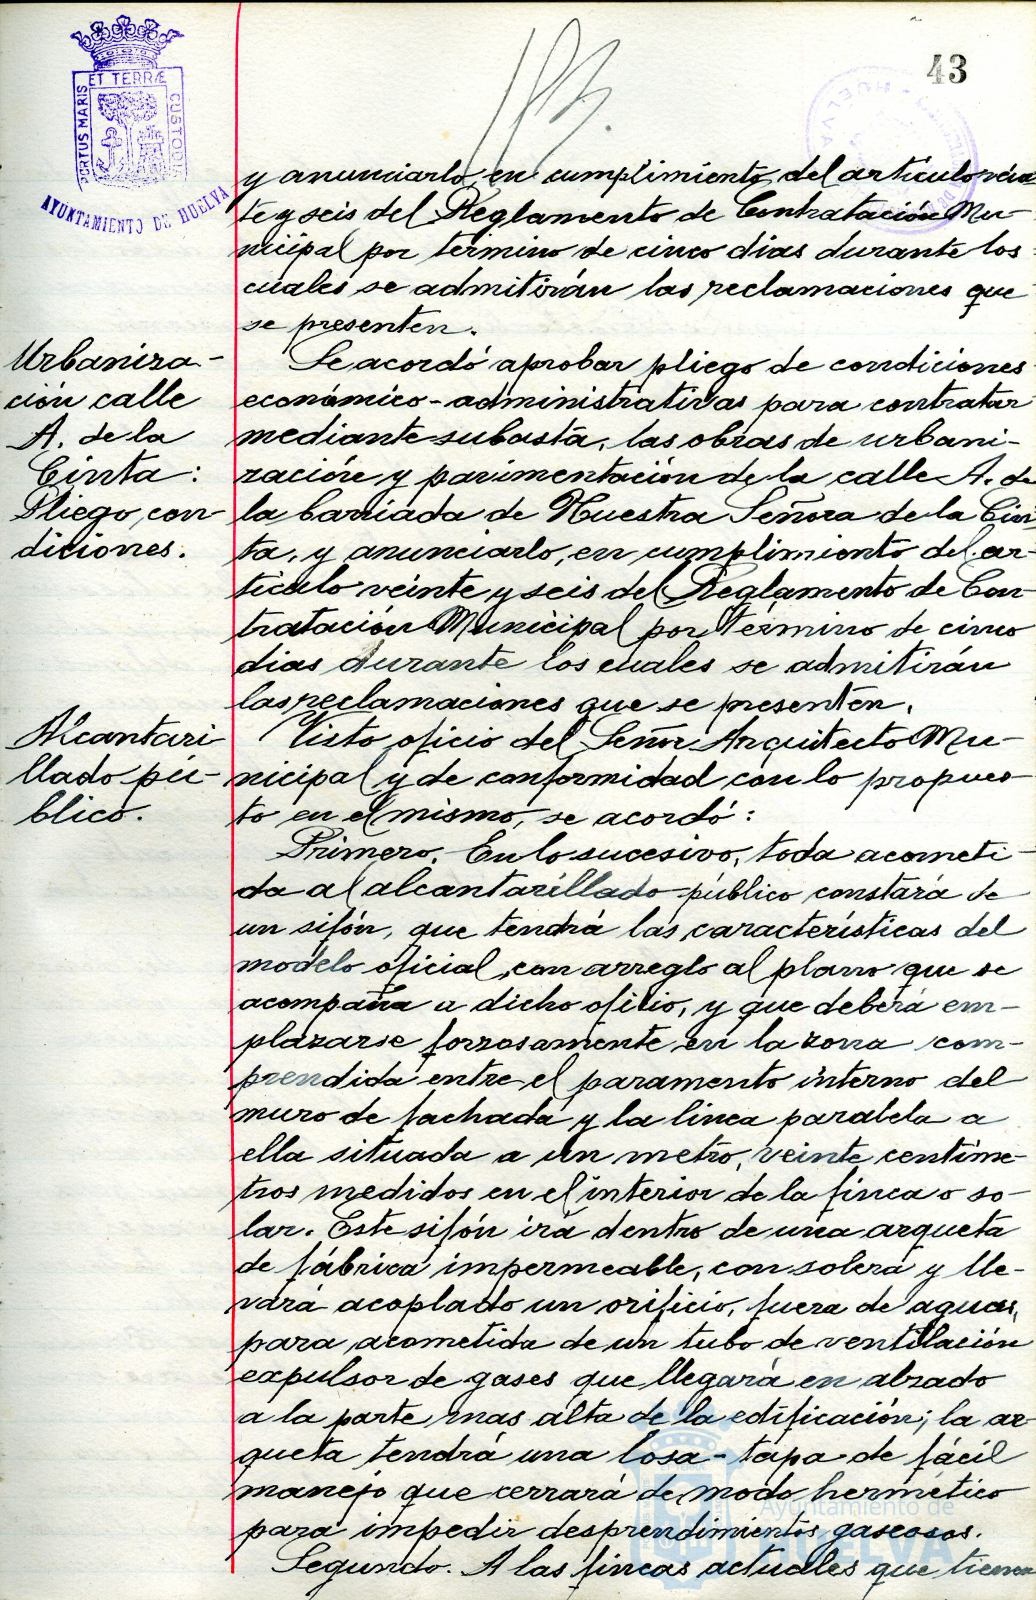 43
ET TERRÆ
PORTUS MARIS
CUSTODI
AYUNTAMIENTO DE HUELVA
HUELVA
y anunciarlo en cumplimiento del artículo vein
te y seis del Reglamento de Contratación Mu-
nicipal por termino de cinco dias durante los
cuales se admitirán las reclamaciones que
se presenten.
Urbaniza-
ción calle
A. de la
Cinta:
Pliego, con-
diciones.
Se acordó aprobar pliego de condiciones
económico-administrativas para contratar
mediante subasta, las obras de urbani-
zación y pavimentación de la calle A. de
la barriada de Nuestra Señora de la Cin
ta, y anunciarlo, en cumplimiento del ar-
tículo veinte y seis del Reglamento de Con-
tratación Municipal por término de cinco
dias durante los cuales se admitirán
las reclamaciones que se presenten.
Alcantari
llado pú-
blico.
Visto oficio del Señor Arquitecto Mu-
nicipal y de conformidad con lo propues
to en el mismo, se acordó:
Primero. En lo sucesivo, toda acometi-
da al alcantarillado público constará de
un sifón, que tendrá las características del
modelo oficial, con arreglo al plano que se
acompaña a dicho oficio, y que deberá em-
plazarse forzosamente en la zona com-
prendida entre el paramento interno del
muro de fachada y la linea paralela a
ella situada a un metro, veinte centíme-
tros medidos en el interior de la finca o so-
lar. Este sifón irá dentro de una arqueta
de fábrica impermeable, con solera y lle-
vará acoplado un orificio, fuera de aguas,
para acometida de un tubo de ventilación
expulsor de gases que llegará en alzado
a la parte mas alta de la edificación; la ar-
queta tendrá una losa-tapa de fácil
manejo que cerrará de modo hermético
para impedir desprendimientos gaseosos.
Segundo. A las fincas actuales que tienen
Ayuntamiento de
HUELVA